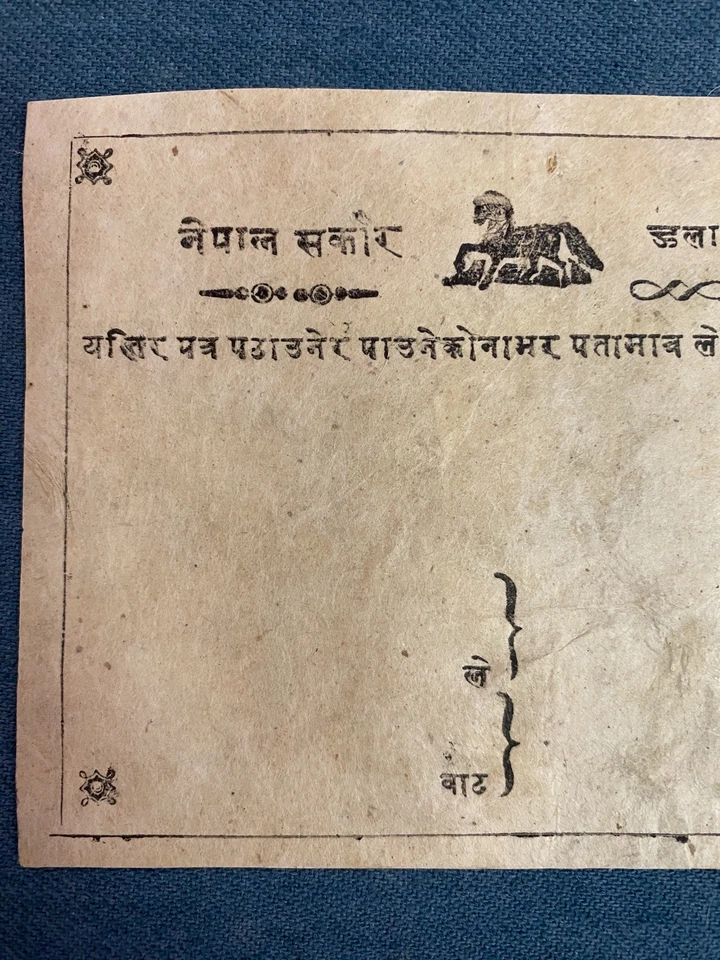 नेपाल सर्कार हुला
यत्तिर पत्र पठाउनेर पाउनेकोनामर पतामात्र ले
ले
वाट